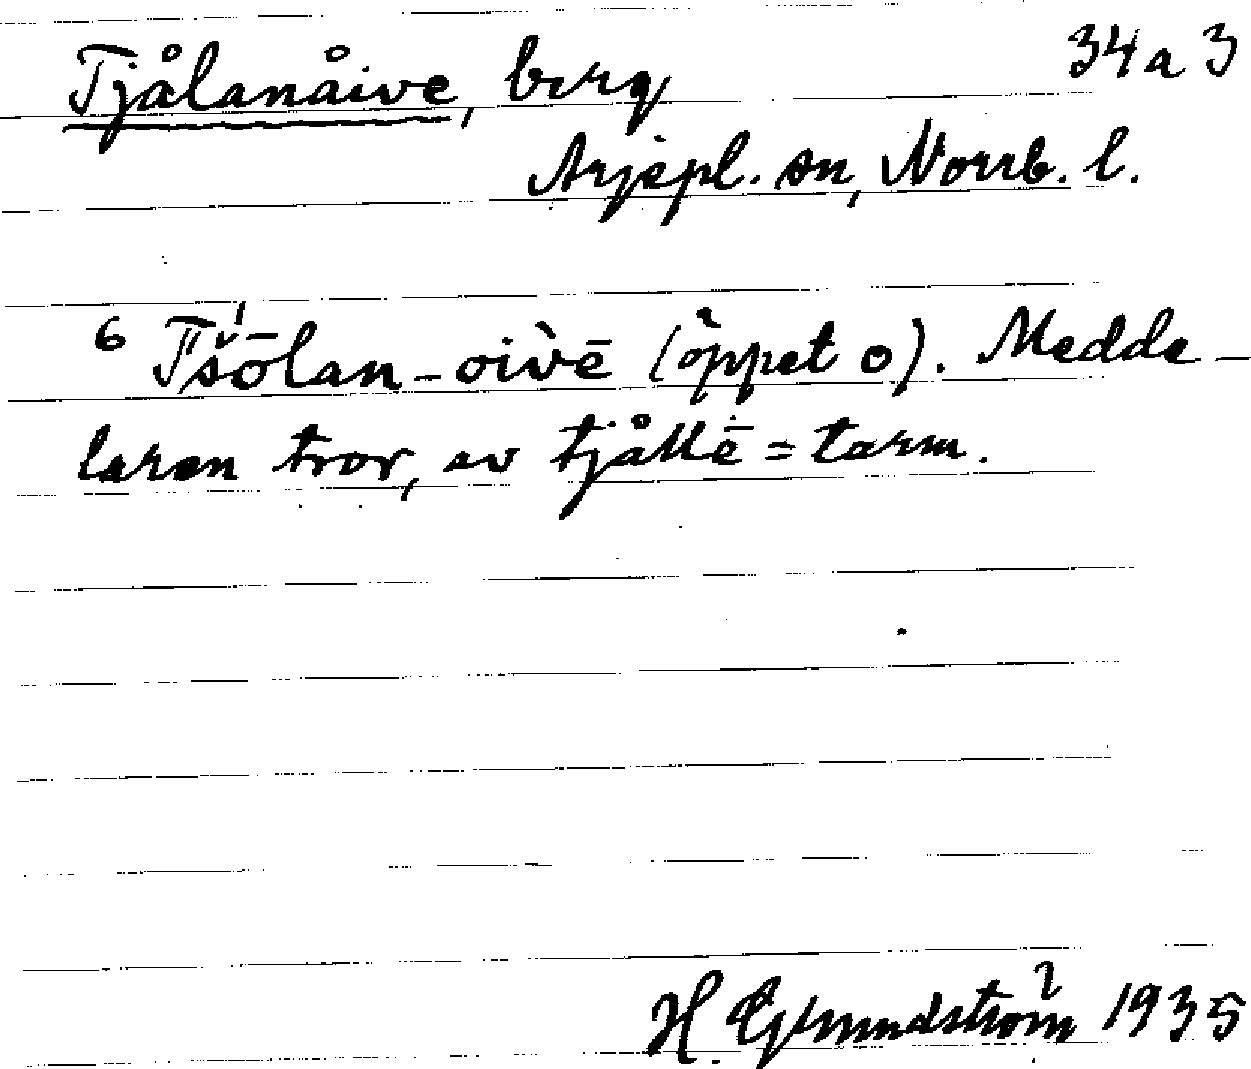 Tjålanåive, berg 34 a 3
Arjepl. sn, Norrb. l.
6 Tšōlan-oivē (öppet o). Medde-
laren tror, av tjållē = tarm.
H. Grundström 1935